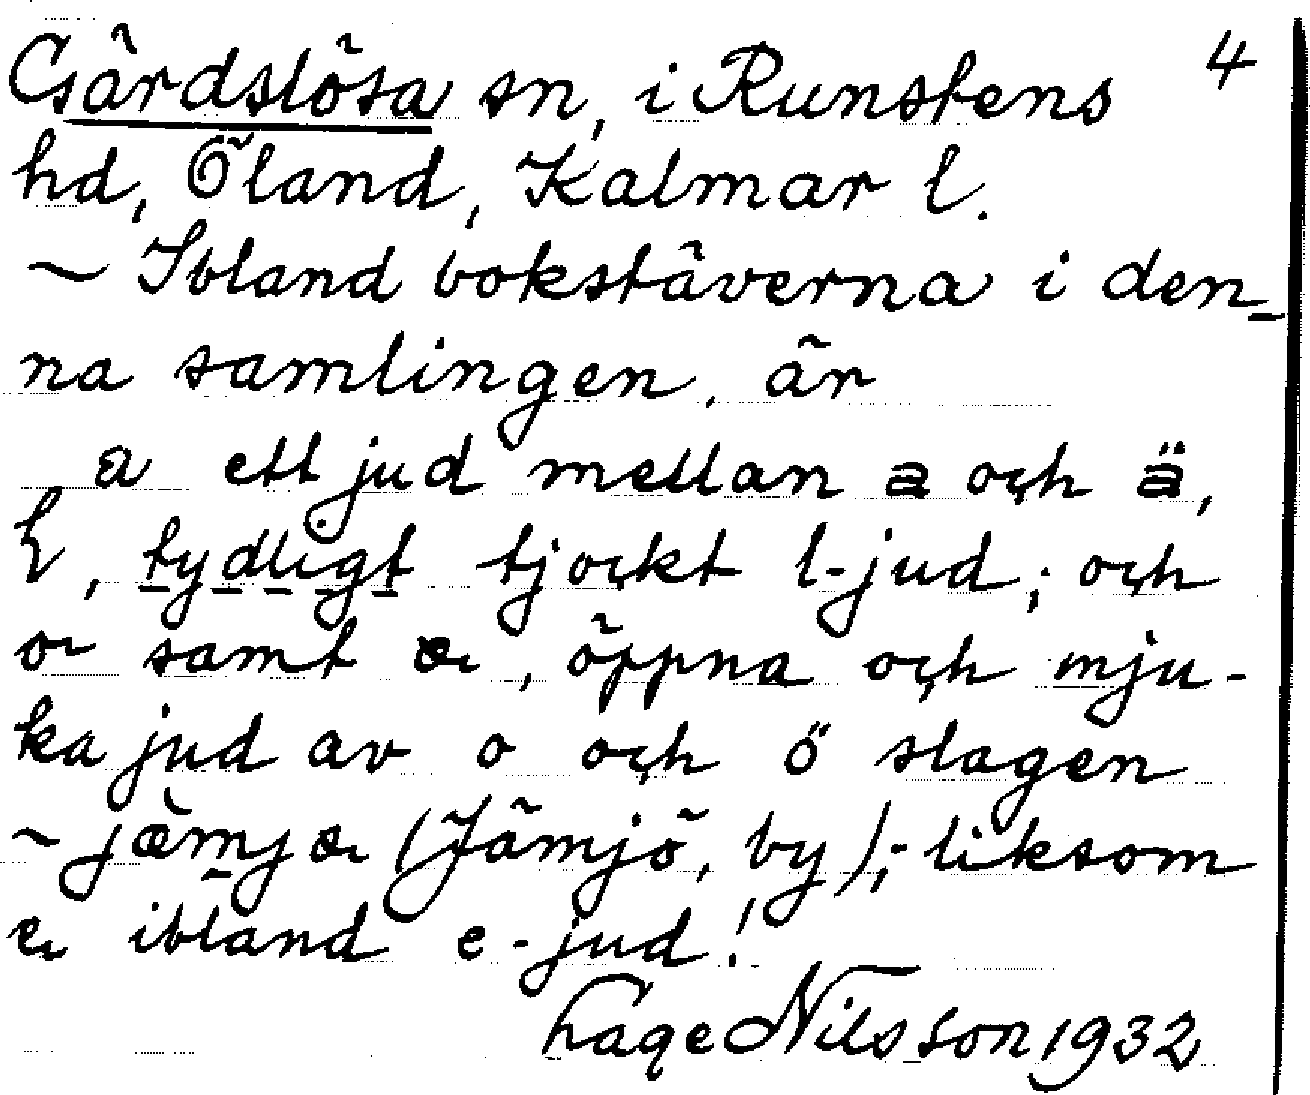 Gärdslösa sn, i Runstens 4
hd, Öland, Kalmar l.
~ Ibland bokstäverna i den-
na samlingen, är
a ett jud mellan a och ä,
, tydligt tjockt l-jud; och
samt , öppna och mju-
ka jud av o och ö slagen
~ (Jämjö, by); liksom
ibland e-jud!
Nilsson 1932